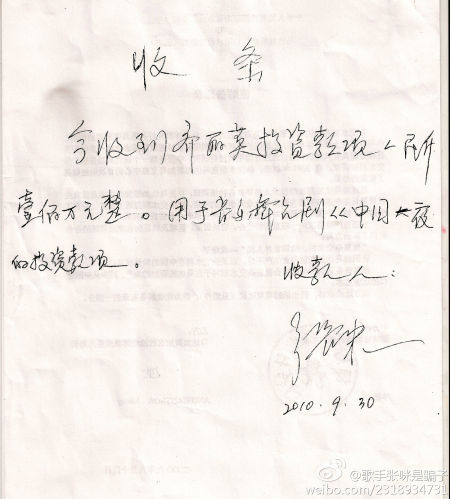 收 条
今收到齐丽英投资款项人民币
壹佰万元整。用于音乐舞台剧《中国一夜
的投资款项。
收款人：
张咪
2010.9.30
@歌手张咪是骗子
weibo.com/2318934731